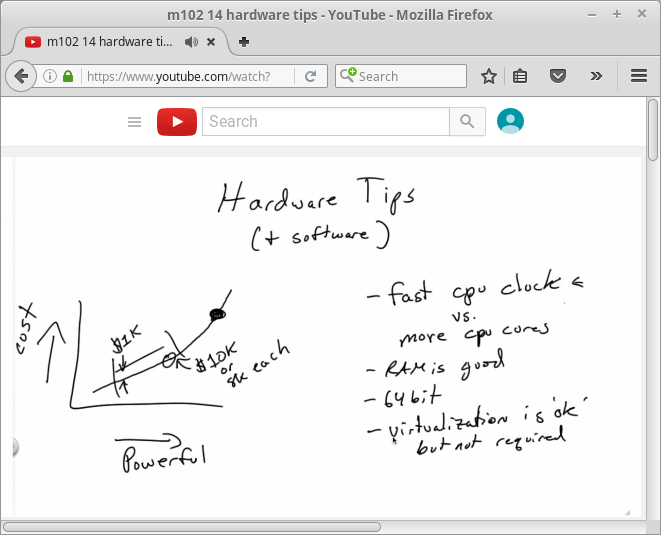 m102 14 hardware tips - YouTube - Mozilla Firefox
m102 14 hardware ti...
https://www.youtube.com/watch?
Search
Search
Hardware Tips
(+ software)
cost
$1K
$10K
or
8k each
Powerful
- fast cpu clock
vs.
more cpu cores
- RAM is good
- 64 bit
- virtualization is 'ok'
but not required